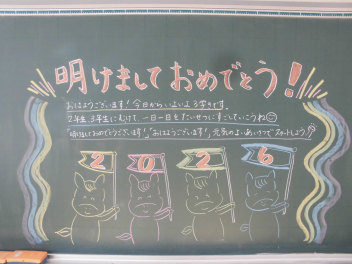 明けましておめでとう!
おはようございます!今日からいよいよ3学きです。
2年生、3年生にむけて、一日一日をたいせつにすごしていこうね
"明けましておめでとうございます!""おはようございます!"元気のよいあいさつでスタートしよう!
2
0
2
6